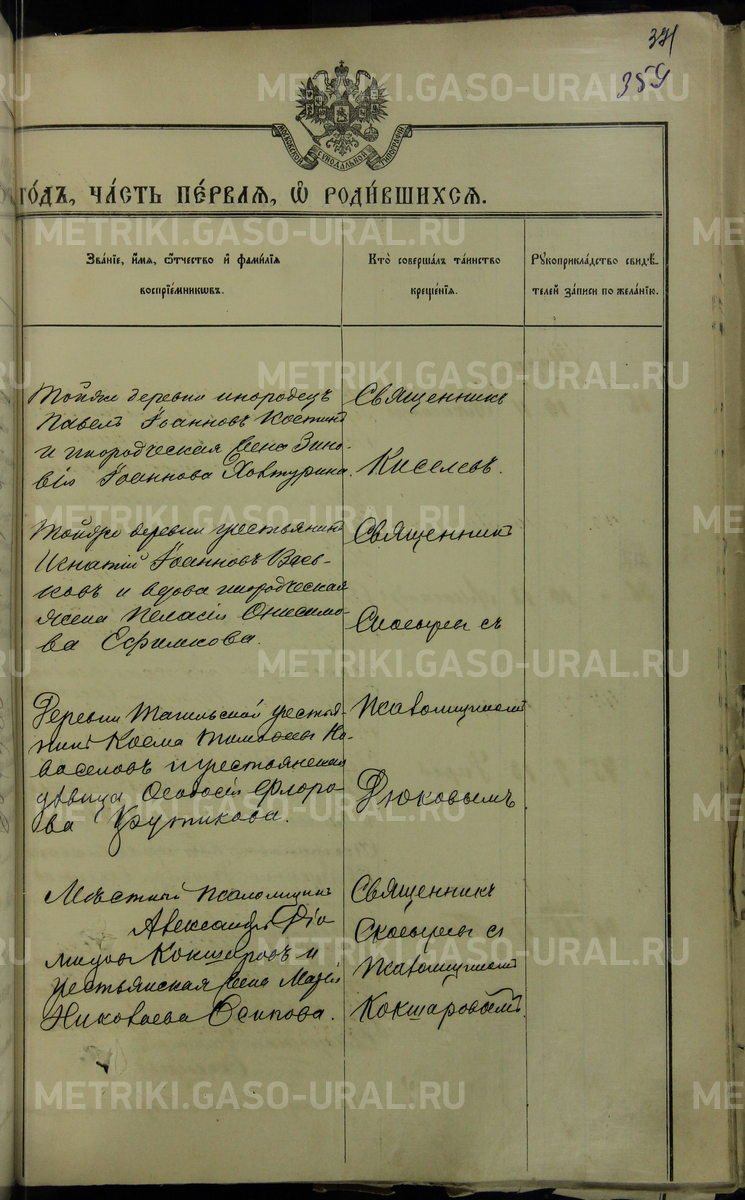 371
359
МОСКОВСКОЙ СѴНОДАЛЬНОЙ ТИПОГРАФІИ
ГО́ДЪ, ЧА́СТЬ ПЕ́РВАЯ, Ѡ҆ РОДИ́ВШИХСЯ.
Зва́нїе, и҆́мя, ѻ҆́тчество и҆ фами́лїя
воспрїе́мникѡвъ.
Кто̀ соверша́лъ та́инство
креще́нїя.
Рꙋкоприкла́дство свидѣ́-
телей за́писи по жела́нїю.
Тойже деревни инородецъ
Павелъ Іоанновъ Костинъ
и инородческая жена Зино-
вія Іоаннова Ховтурина.
Священникъ
Киселевъ.
Тойже деревни крестьянинъ
Игнатій Іоанновъ Вась-
ковъ и вдова инородческая
жена Пелагія Онисимо-
ва Ефимкова.
Священникъ
Скосыревъ съ
Псаломщикомъ
Дюковымъ
Деревни Тагильской крестья-
нинъ Косма Тимофеевъ Но-
воселовъ и крестьянская
дѣвица Ѳеодосія Флоро-
ва Крутикова.
Мѣстный псаломщикъ
Александръ Діо
мидовъ Кокшаровъ и
крестьянская жена Марія
Николаева Осипова.
Священникъ
Скосыревъ съ
Псаломщикомъ
Кокшаровымъ.
METRIKI.GASO-URAL.RU